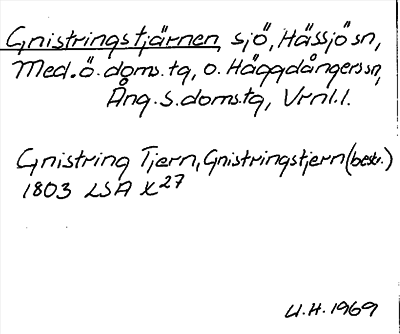 Gnistringstjärnen, sjö, Hässjö sn,
Med. ö. doms. tg, o. Häggdångers sn,
Ång. s. doms. tg, Vrnl. l.
Gnistring Tjern, Gnistringstjern (beskr.)
1803 LSA X 27
U.H. 1969